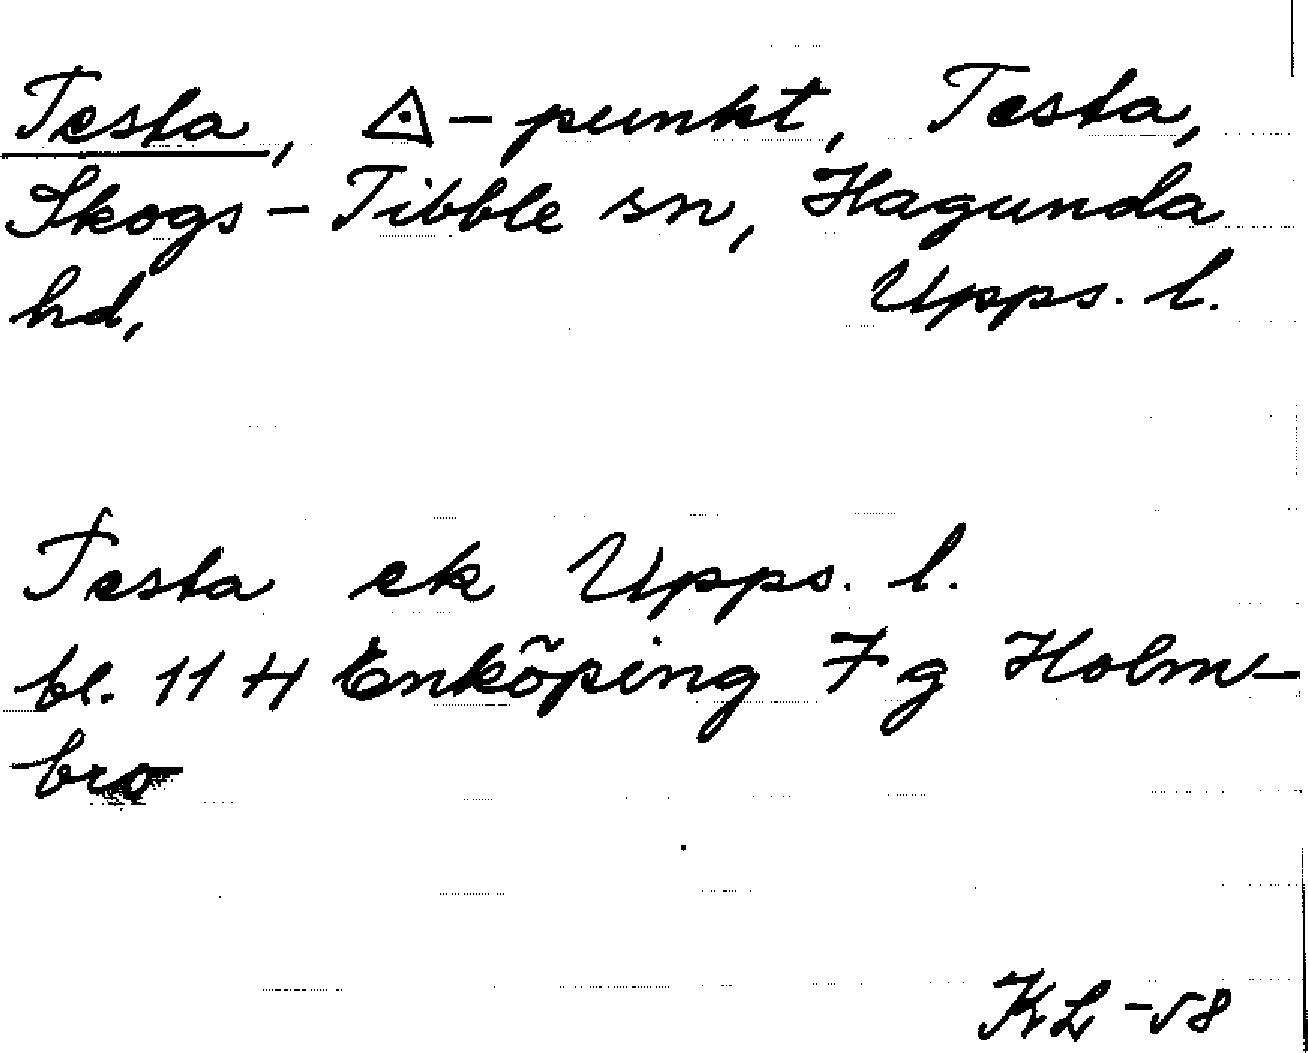 Testa, △-punkt, Testa,
Skogs-Tibble sn, Hagunda
hd, Upps. l.
Testa ek Upps. l.
bl. 11 H Enköping 7 g Holm-
bro
KL -58